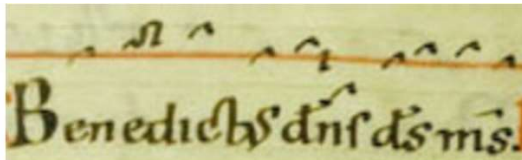 Benedictus dñs ds̄ ms̄.